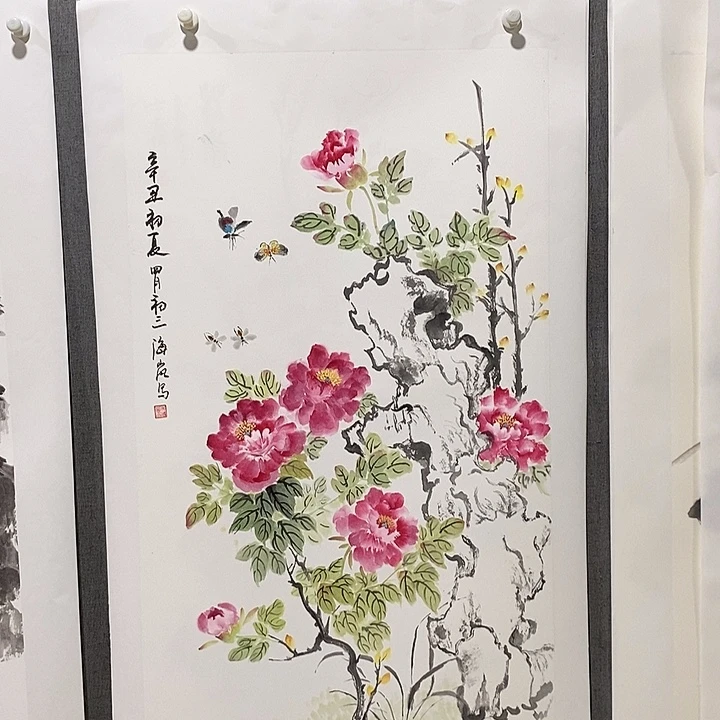 辛丑初夏四月初三海岚写